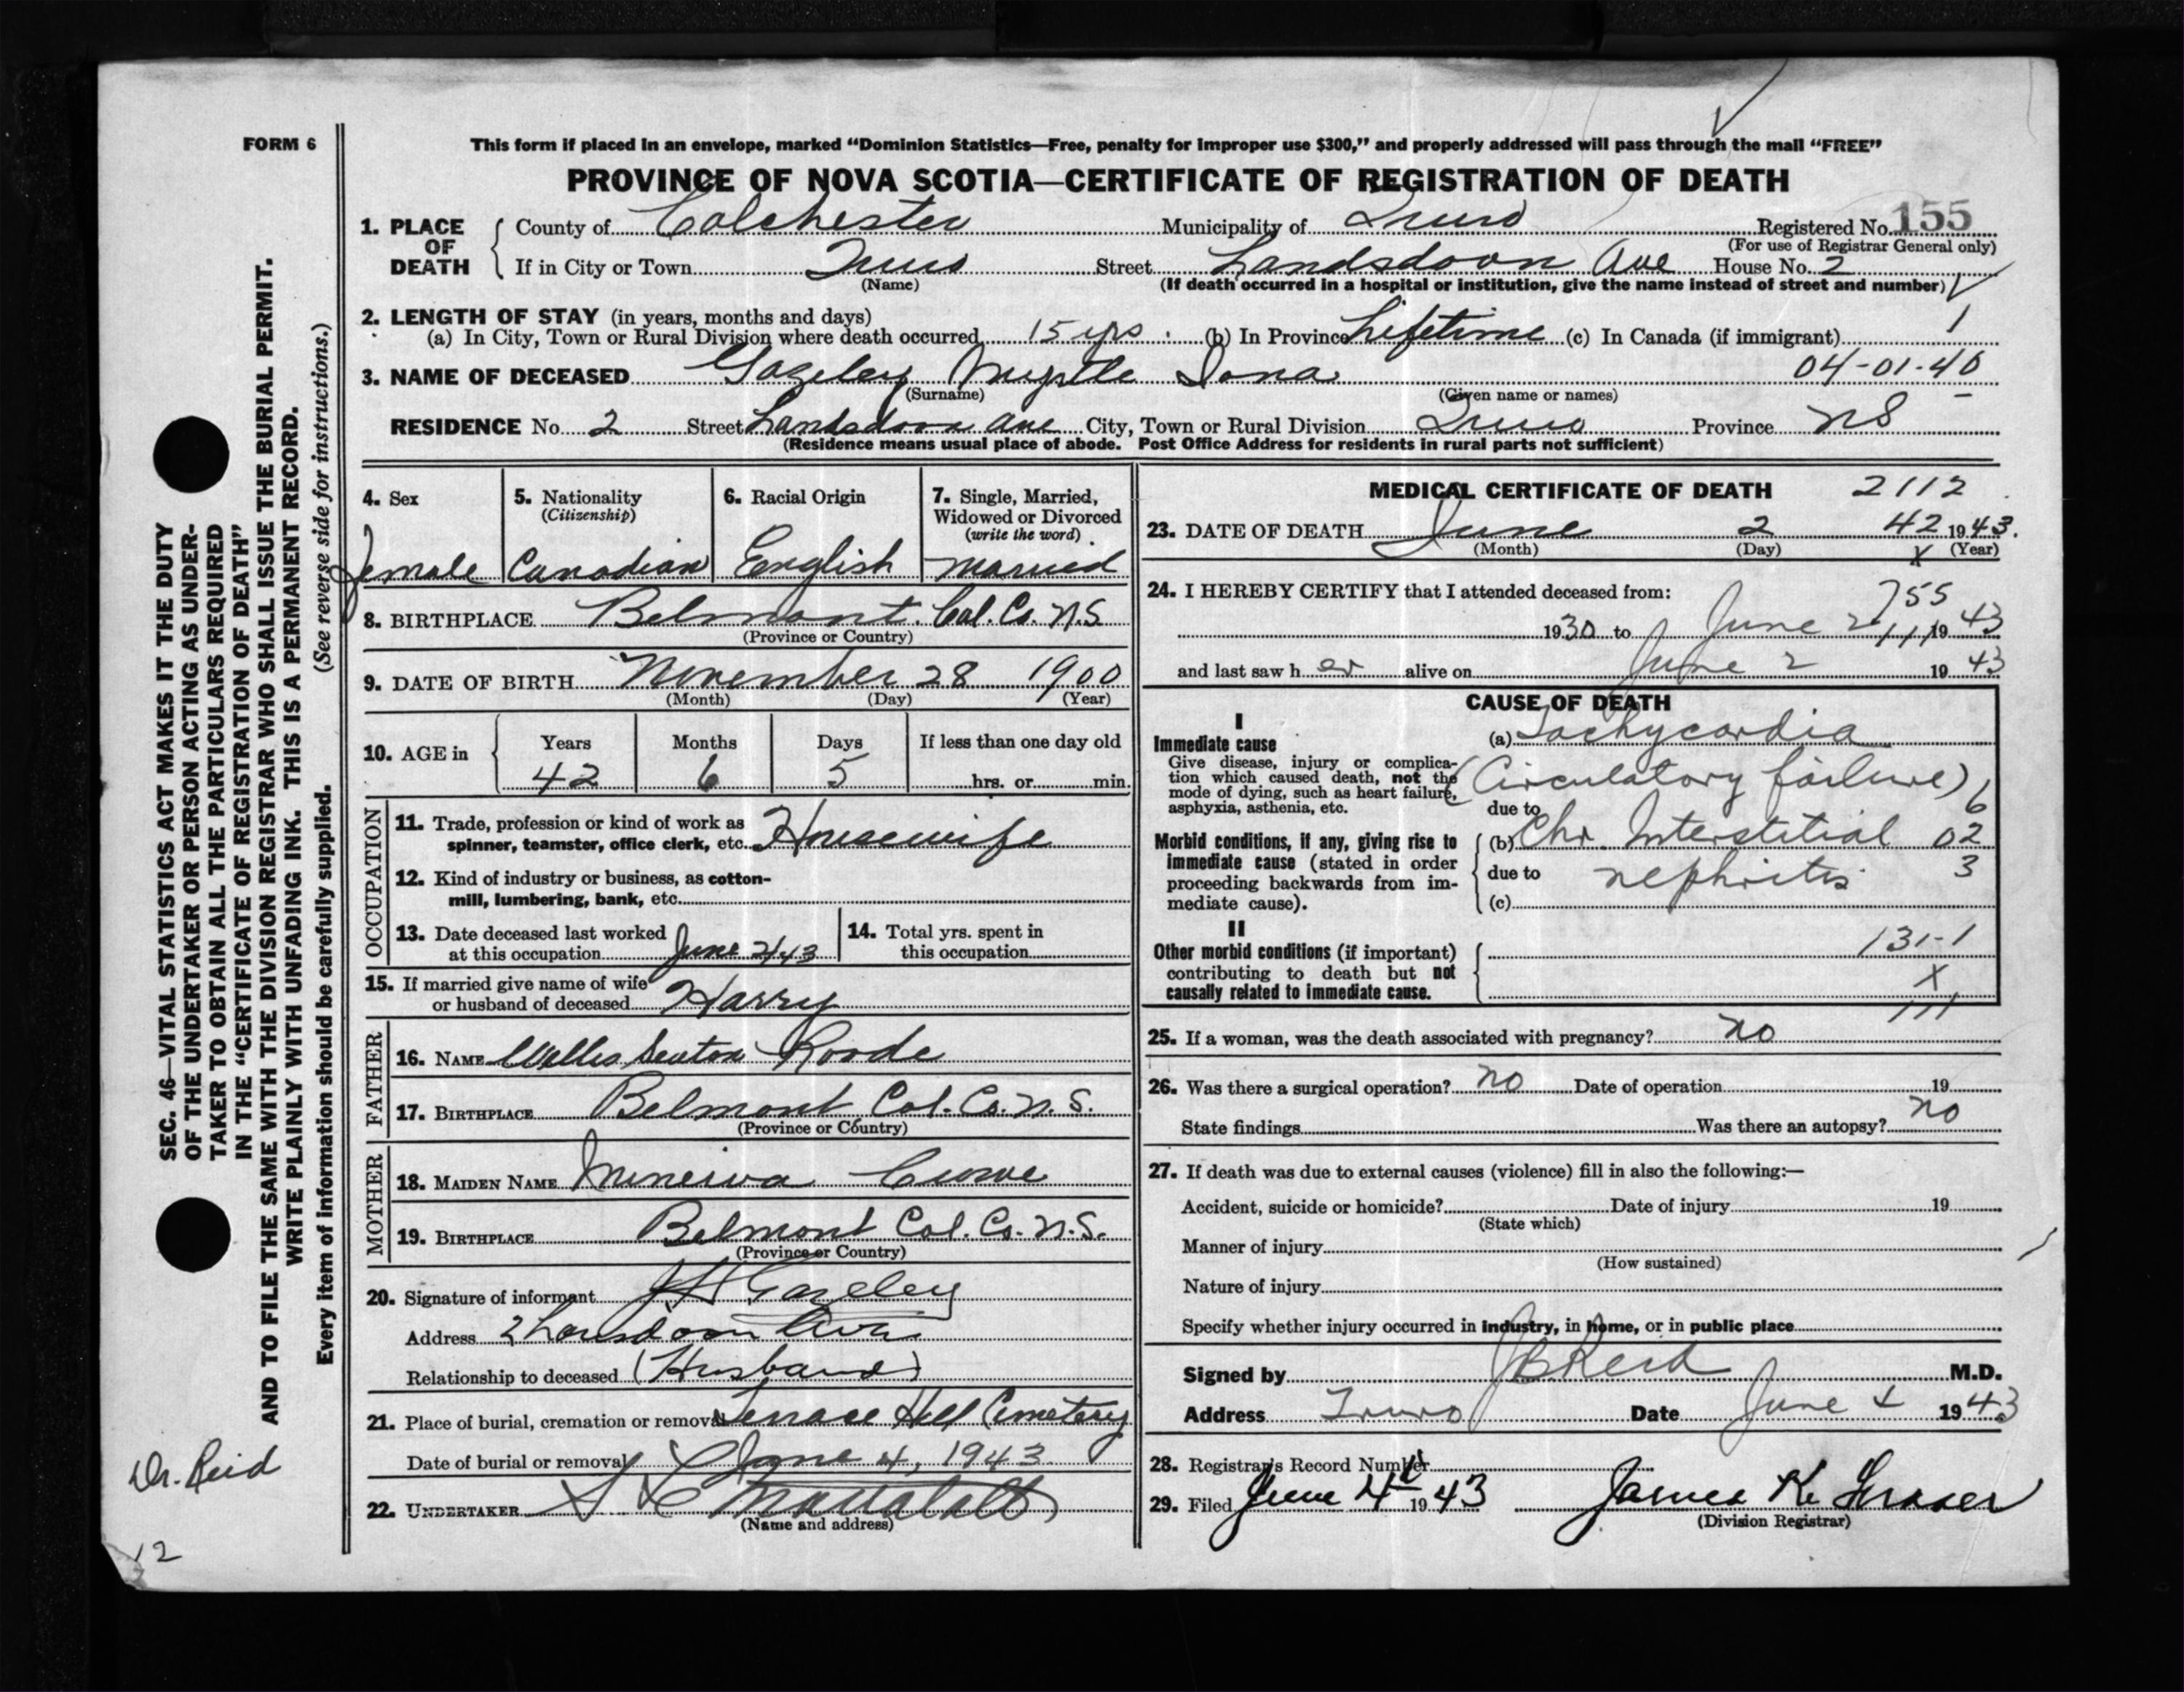 FORM 6
This form if placed in an envelope, marked "Dominion Statistics—Free, penalty for improper use $300," and properly addressed will pass through the mail "FREE"
PROVINCE OF NOVA SCOTIA—CERTIFICATE OF REGISTRATION OF DEATH
1. PLACE OF DEATH
County of Colchester Municipality of Truro Registered No. 155
(For use of Registrar General only)
If in City or Town Truro Street Landsdoon Ave House No. 2
(Name) (If death occurred in a hospital or institution, give the name instead of street and number)
2. LENGTH OF STAY (in years, months and days) 1
(a) In City, Town or Rural Division where death occurred 15 yrs. (b) In Province Lifetime (c) In Canada (if immigrant)
3. NAME OF DECEASED Gazeley Myrtle Iona 04-01-40
(Surname) (Given name or names)
RESIDENCE No. 2 Street Landsdoon Ave City, Town or Rural Division Truro Province NS
(Residence means usual place of abode. Post Office Address for residents in rural parts not sufficient)
4. Sex
Female
5. Nationality
(Citizenship)
Canadian
6. Racial Origin
English
7. Single, Married,
Widowed or Divorced
(write the word)
Married
8. BIRTHPLACE Belmont. Col. Co. N.S
(Province or Country)
9. DATE OF BIRTH November 28 1900
(Month) (Day) (Year)
10. AGE in
Years Months Days If less than one day old
42 6 5 hrs. or min.
OCCUPATION
11. Trade, profession or kind of work as
spinner, teamster, office clerk, etc. Housewife
12. Kind of industry or business, as cotton-
mill, lumbering, bank, etc.
13. Date deceased last worked
at this occupation June 2/43
14. Total yrs. spent in
this occupation
15. If married give name of wife
or husband of deceased Harry
FATHER
16. NAME Roode
17. BIRTHPLACE Belmont Col. Co. N.S.
(Province or Country)
MOTHER
18. MAIDEN NAME Minerva Crowe
19. BIRTHPLACE Belmont Col. Co. N.S.
(Province or Country)
20. Signature of informant H Gazeley
Address 2 Lansdoon Ave
Relationship to deceased (Husband)
21. Place of burial, cremation or removal Terrace Hill Cemetery
Date of burial or removal June 4, 1943
22. UNDERTAKER
(Name and address)
MEDICAL CERTIFICATE OF DEATH 2112
23. DATE OF DEATH June 2 42 1943.
(Month) (Day) X (Year)
24. I HEREBY CERTIFY that I attended deceased from:
755
1930 to June 2 1943
and last saw h er alive on June 2 1943
CAUSE OF DEATH
I
Immediate cause
Give disease, injury or complica-
tion which caused death, not the
mode of dying, such as heart failure,
asphyxia, asthenia, etc.
(a) Tachycardia
(Circulatory failure)
due to 6
Morbid conditions, if any, giving rise to
immediate cause (stated in order
proceeding backwards from im-
mediate cause).
(b) Chr. Interstitial 02
due to nephritis 3
(c)
II
Other morbid conditions (if important)
contributing to death but not
causally related to immediate cause.
131-1
X
111
25. If a woman, was the death associated with pregnancy? no
26. Was there a surgical operation? no Date of operation 19
State findings Was there an autopsy? no
27. If death was due to external causes (violence) fill in also the following:—
Accident, suicide or homicide? Date of injury 19
(State which)
Manner of injury
(How sustained)
Nature of injury
Specify whether injury occurred in industry, in home, or in public place
Signed by JB Reid M.D.
Address Truro Date June 4 1943
28. Registrar's Record Number
29. Filed June 4th 1943 James K. Fraser
(Division Registrar)
SEC. 46—VITAL STATISTICS ACT MAKES IT THE DUTY
OF THE UNDERTAKER OR PERSON ACTING AS UNDER-
TAKER TO OBTAIN ALL THE PARTICULARS REQUIRED
IN THE "CERTIFICATE OF REGISTRATION OF DEATH"
AND TO FILE THE SAME WITH THE DIVISION REGISTRAR WHO SHALL ISSUE THE BURIAL PERMIT.
WRITE PLAINLY WITH UNFADING INK. THIS IS A PERMANENT RECORD.
Every item of information should be carefully supplied. (See reverse side for instructions.)
Dr. Reid
12